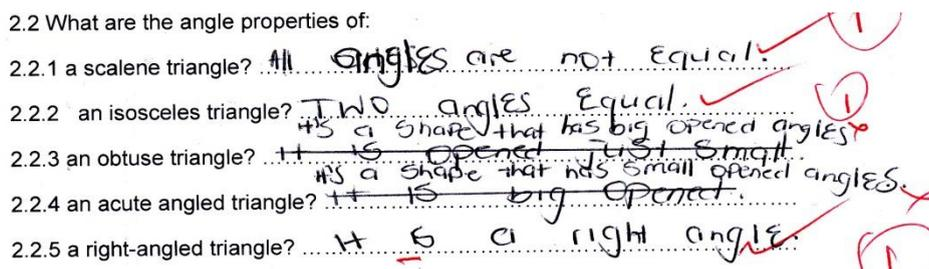 2.2 What are the angle properties of:
2.2.1 a scalene triangle? All angles are not Equal.
1
2.2.2 an isosceles triangle? TWO angles Equal.
1
It's a shape that has big opened angles
2.2.3 an obtuse triangle? It is opened just small.
It's a shape that has small opened angles.
2.2.4 an acute angled triangle? It is big opened.
2.2.5 a right-angled triangle? It is a right angle.
1